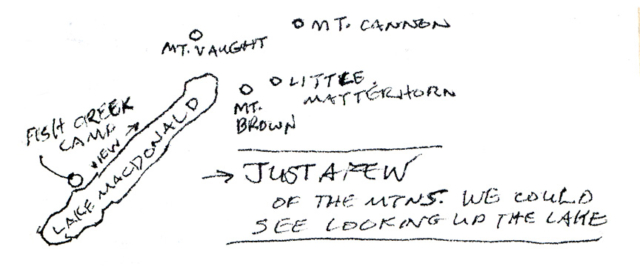 MT. VAUGHT
MT. CANNON
LITTLE
MATTERHORN
MT.
BROWN
FISH CREEK
CAMP
VIEW
LAKE MACDONALD
→ JUST A FEW
OF THE MTNS. WE COULD
SEE LOOKING UP THE LAKE